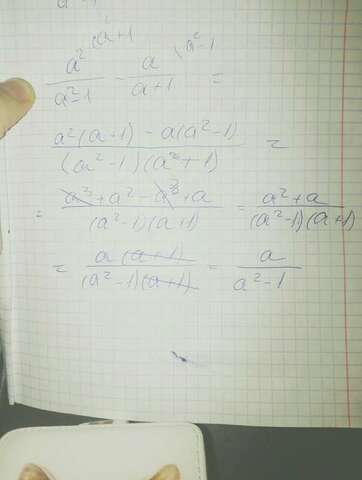 a²/(a²-1) \(a+1 - a/(a+1) \(a²-1 =
(a²(a+1) - a(a²-1))/((a²-1)(a+1)) =
= (a³+a²-a³+a)/((a²-1)(a+1)) = (a²+a)/((a²-1)(a+1))
= (a(a+1))/((a²-1)(a+1)) = a/(a²-1)